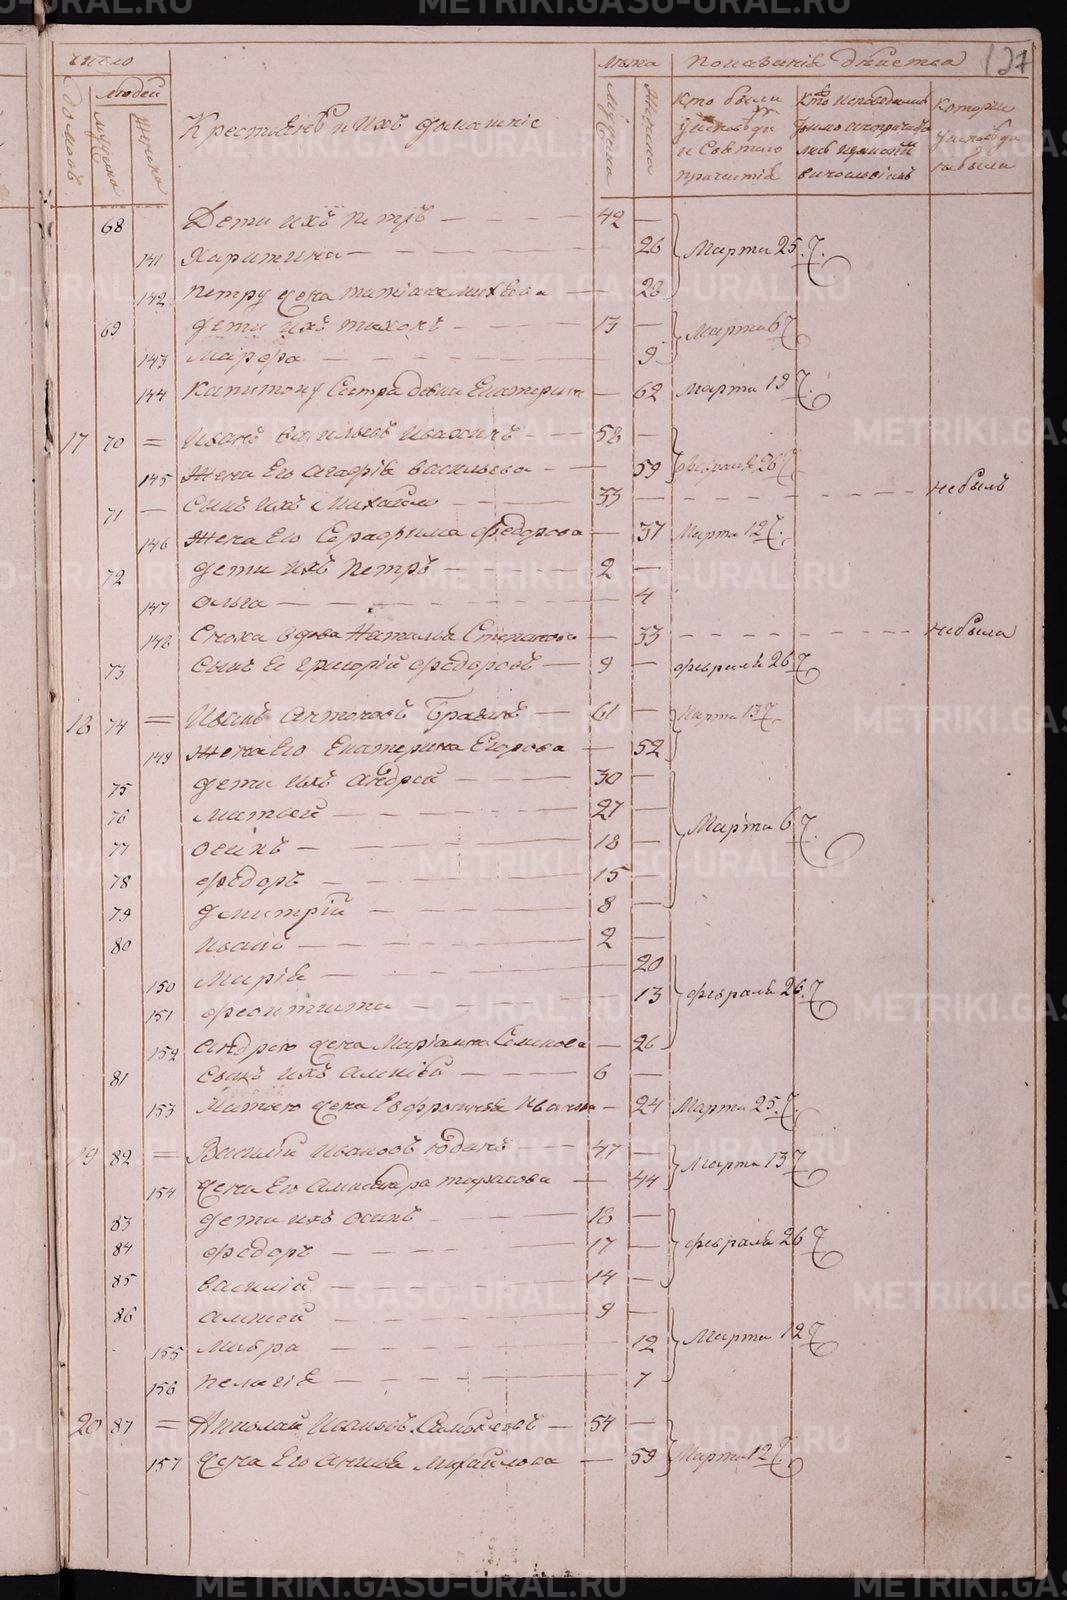 число
людей
лѣта
Показаніѣ дѣйства
127
домовъ
мужска
женска
Крестьянѣ и ихъ домашніе
мужска
женска
кто были у исповѣди и Святаго причастіѣ
которіи у исповѣди не были
68 Дети ихъ петръ — 42 —
141 Харитина — 26 Марта 25. Ч.
142 петру жена татіана михѣева — 28
69 дети ихъ тихонъ — 13 — Марта 6 Ч
143 марфа — 9
144 Капитону Сестра девка Екатерина — 62 марта 19 Ч.
17 70 = Иванъ васильевъ — 58 —
145 Жена Его агафіѣ васильева — 59 февраля 26 Ч
71 — Сынъ ихъ Михайло — 33 — не былъ
146 Жена Его Серафима федорова — 37 Марта 12 Ч.
72 дети ихъ Петръ — 2 —
147 Ольга — 4
148 Сноха вдова Наталья Степанова — 33 — не была
73 Сынъ Ее григорій федоровъ — 9 — февралѣ 26 Ч
18 74 = Иванъ антоновъ — 61 — Марта 13 Ч.
149 Жена Его Екатерина Егорова — 52
75 дети ихъ андрей — 30 —
76 матвей — 27 —
77 осипъ — 18 — Марта 6 Ч.
78 федоръ — 15 —
79 дмитрій — 8 —
80 иванъ — 2 —
150 Маріѣ — 20
151 феоктиста — 13 февралѣ 26. Ч
152 андрею жена Маріамна Семенова — 26
81 Сынъ ихъ алексѣй — 6 —
153 Матвею жена Евфросинѣѣ Иванова — 24 Марта 25. Ч.
19 82 = Василій Ивановъ Юдинъ — 47 — Марта 13 Ч
154 жена Его александра тарасова — 44
83 дети ихъ осипъ — 18 —
84 федоръ — 17 — февралѣ 26 Ч
85 василій — 14 —
86 алексей — 9 —
155 Мавра — 12 Марта 12 Ч
156 пелагіѣ — 7
20 87 = Николай Ивановъ — 54 —
157 жена Его анисьѣ Михайлова — 59 Марта 12 Ч.
METRIKI.GASO-URAL.RU